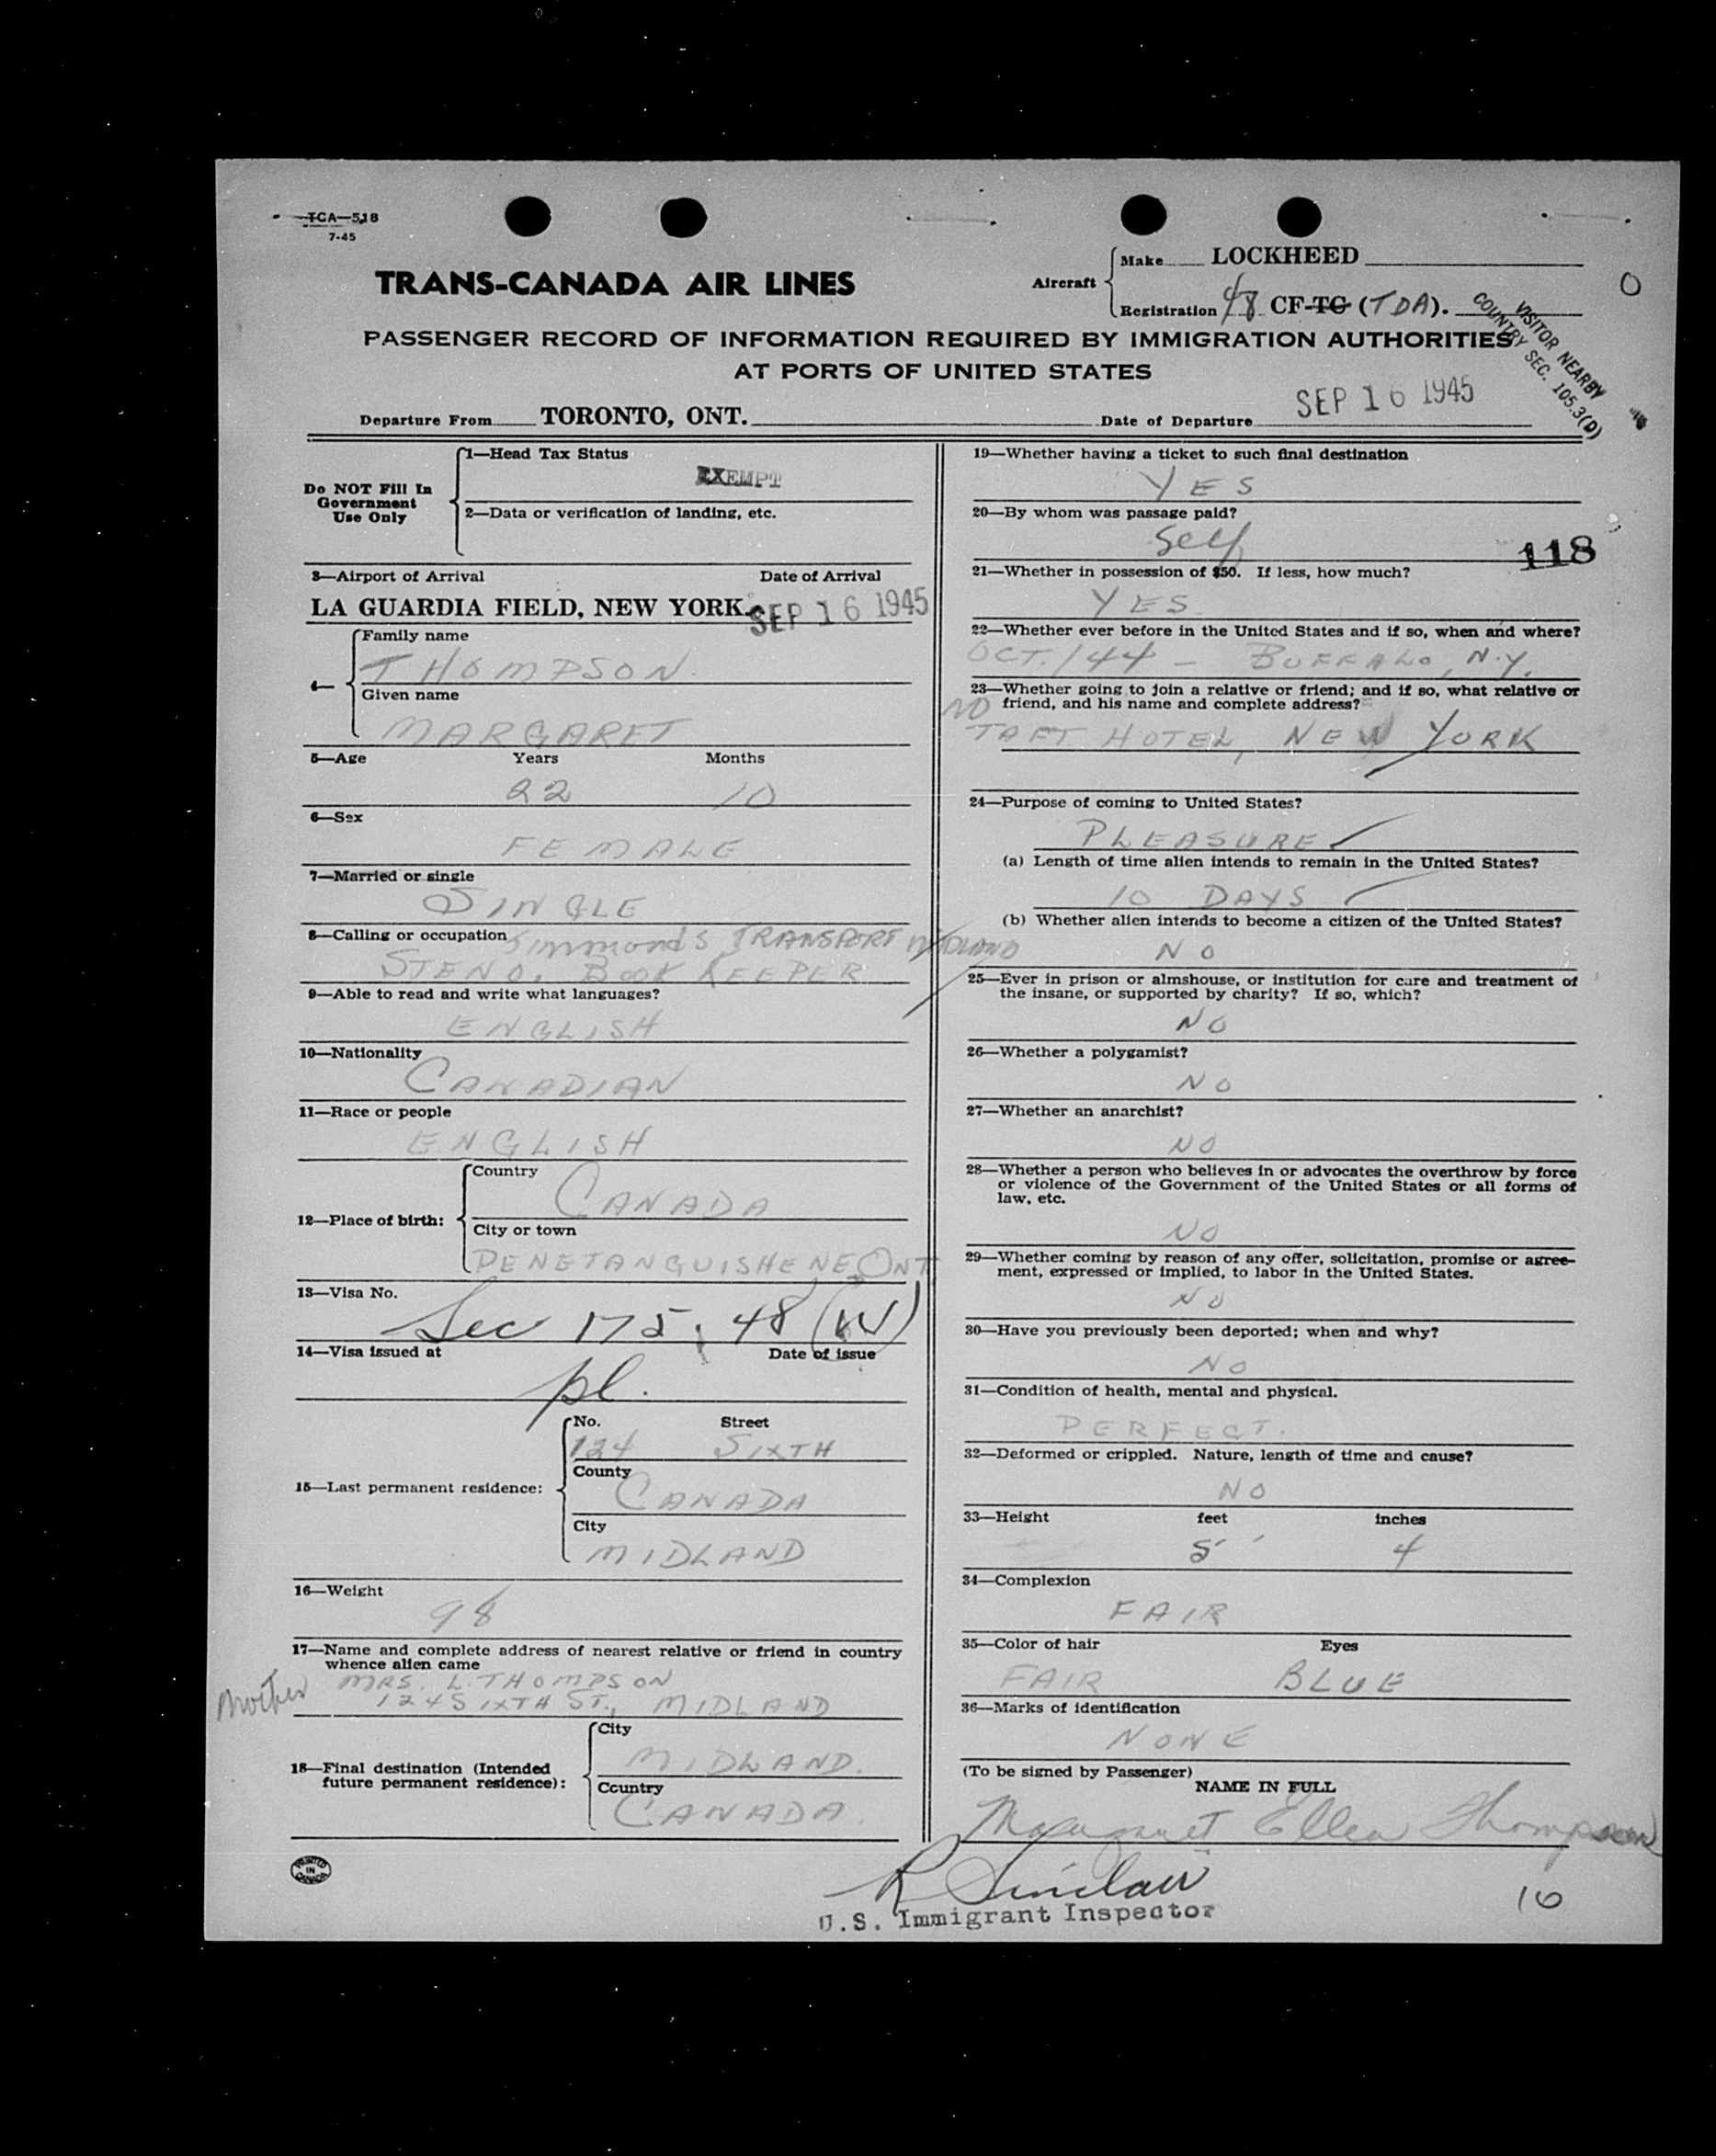 TCA—518
7-45
TRANS-CANADA AIR LINES
Aircraft
Make LOCKHEED
Registration 48 CF-TC (TDA).
O
VISITOR NEARBY
COUNTRY SEC. 105.3(D)
PASSENGER RECORD OF INFORMATION REQUIRED BY IMMIGRATION AUTHORITIES
AT PORTS OF UNITED STATES
Departure From TORONTO, ONT. Date of Departure SEP 16 1945
Do NOT Fill In
Government
Use Only
1—Head Tax Status
EXEMPT
2—Data or verification of landing, etc.
3—Airport of Arrival Date of Arrival
LA GUARDIA FIELD, NEW YORK. SEP 16 1945
4—
Family name
THOMPSON
Given name
MARGARET
5—Age Years Months
22 10
6—Sex
FEMALE
7—Married or single
SINGLE
8—Calling or occupation Simmonds TRANSPORT MIDLAND
STENO, BOOK KEEPER
9—Able to read and write what languages?
ENGLISH
10—Nationality
CANADIAN
11—Race or people
ENGLISH
12—Place of birth:
Country
CANADA
City or town
PENETANGUISHENE, ONT
13—Visa No.
Sec 175.48 (W)
14—Visa issued at Date of issue
pl.
15—Last permanent residence:
No. Street
124 SIXTH
County
CANADA
City
MIDLAND
16—Weight
98
17—Name and complete address of nearest relative or friend in country
whence alien came
Mother MRS. L. THOMPSON
124 SIXTH ST., MIDLAND
18—Final destination (Intended
future permanent residence):
City
MIDLAND.
Country
CANADA.
19—Whether having a ticket to such final destination
YES
20—By whom was passage paid?
Self
118
21—Whether in possession of $50. If less, how much?
YES
22—Whether ever before in the United States and if so, when and where?
OCT. / 44 – BUFFALO, N.Y.
23—Whether going to join a relative or friend; and if so, what relative or
friend, and his name and complete address?
NO
TAFT HOTEL, NEW YORK
24—Purpose of coming to United States?
PLEASURE
(a) Length of time alien intends to remain in the United States?
10 DAYS
(b) Whether alien intends to become a citizen of the United States?
NO
25—Ever in prison or almshouse, or institution for care and treatment of
the insane, or supported by charity? If so, which?
NO
26—Whether a polygamist?
NO
27—Whether an anarchist?
NO
28—Whether a person who believes in or advocates the overthrow by force
or violence of the Government of the United States or all forms of
law, etc.
NO
29—Whether coming by reason of any offer, solicitation, promise or agree-
ment, expressed or implied, to labor in the United States.
NO
30—Have you previously been deported; when and why?
NO
31—Condition of health, mental and physical.
PERFECT.
32—Deformed or crippled. Nature, length of time and cause?
NO
33—Height feet inches
5' 4
34—Complexion
FAIR
35—Color of hair Eyes
FAIR BLUE
36—Marks of identification
NONE
(To be signed by Passenger)
NAME IN FULL
Margaret Ellen Thompson
R Sinclair
U.S. Immigrant Inspector
16
PRINTED
IN
CANADA